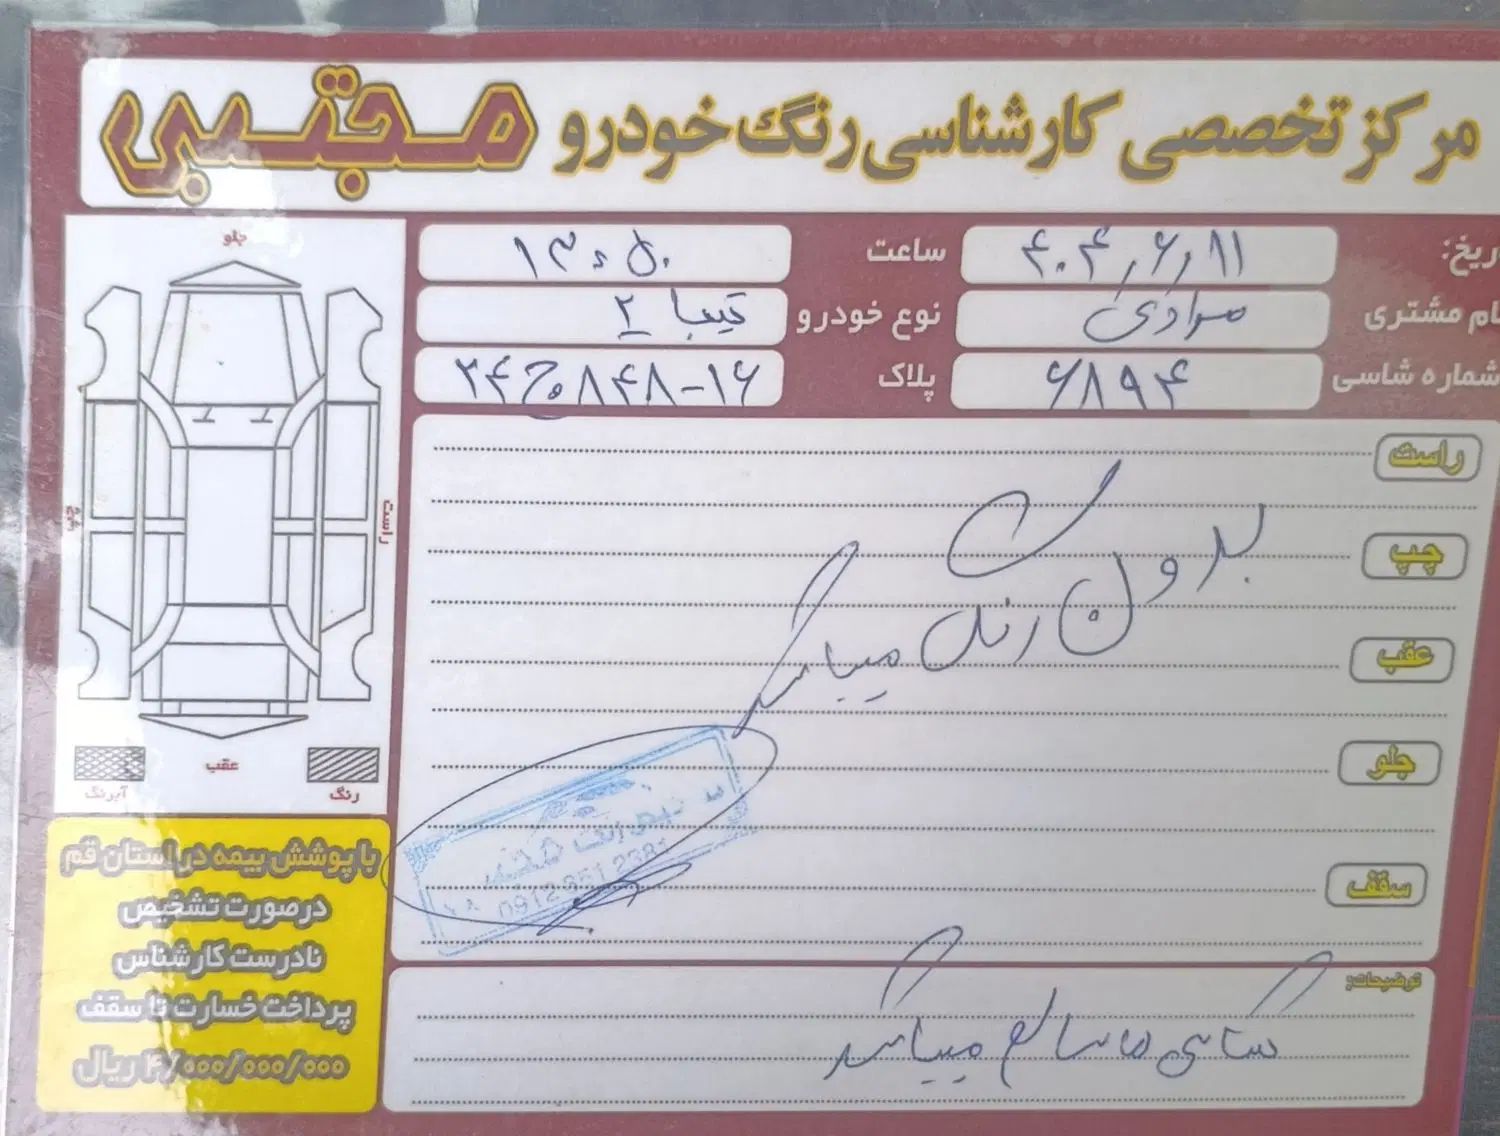 مرکز تخصصی کارشناسی رنگ خودرو مجتبی
ریخ: ۴۰۴٫۶٫۱۱ ساعت ۱۳:۵۰
نام مشتری مرادی نوع خودرو تیبا ۲
شماره شاسی ۶۸۹۴ پلاک ۲۴ج۸۴۸-۱۶
راست
چپ
عقب
جلو
سقف
بدون رنگ میباشد
0912 851 2381
توضیحات:
شاسی ها سالم میباشد
جلو
چپ
راست
عقب
رنگ
آبرنگ
با پوشش بیمه در استان قم
درصورت تشخیص
نادرست کارشناس
پرداخت خسارت تا سقف
۴/۰۰۰/۰۰۰/۰۰۰ ریال